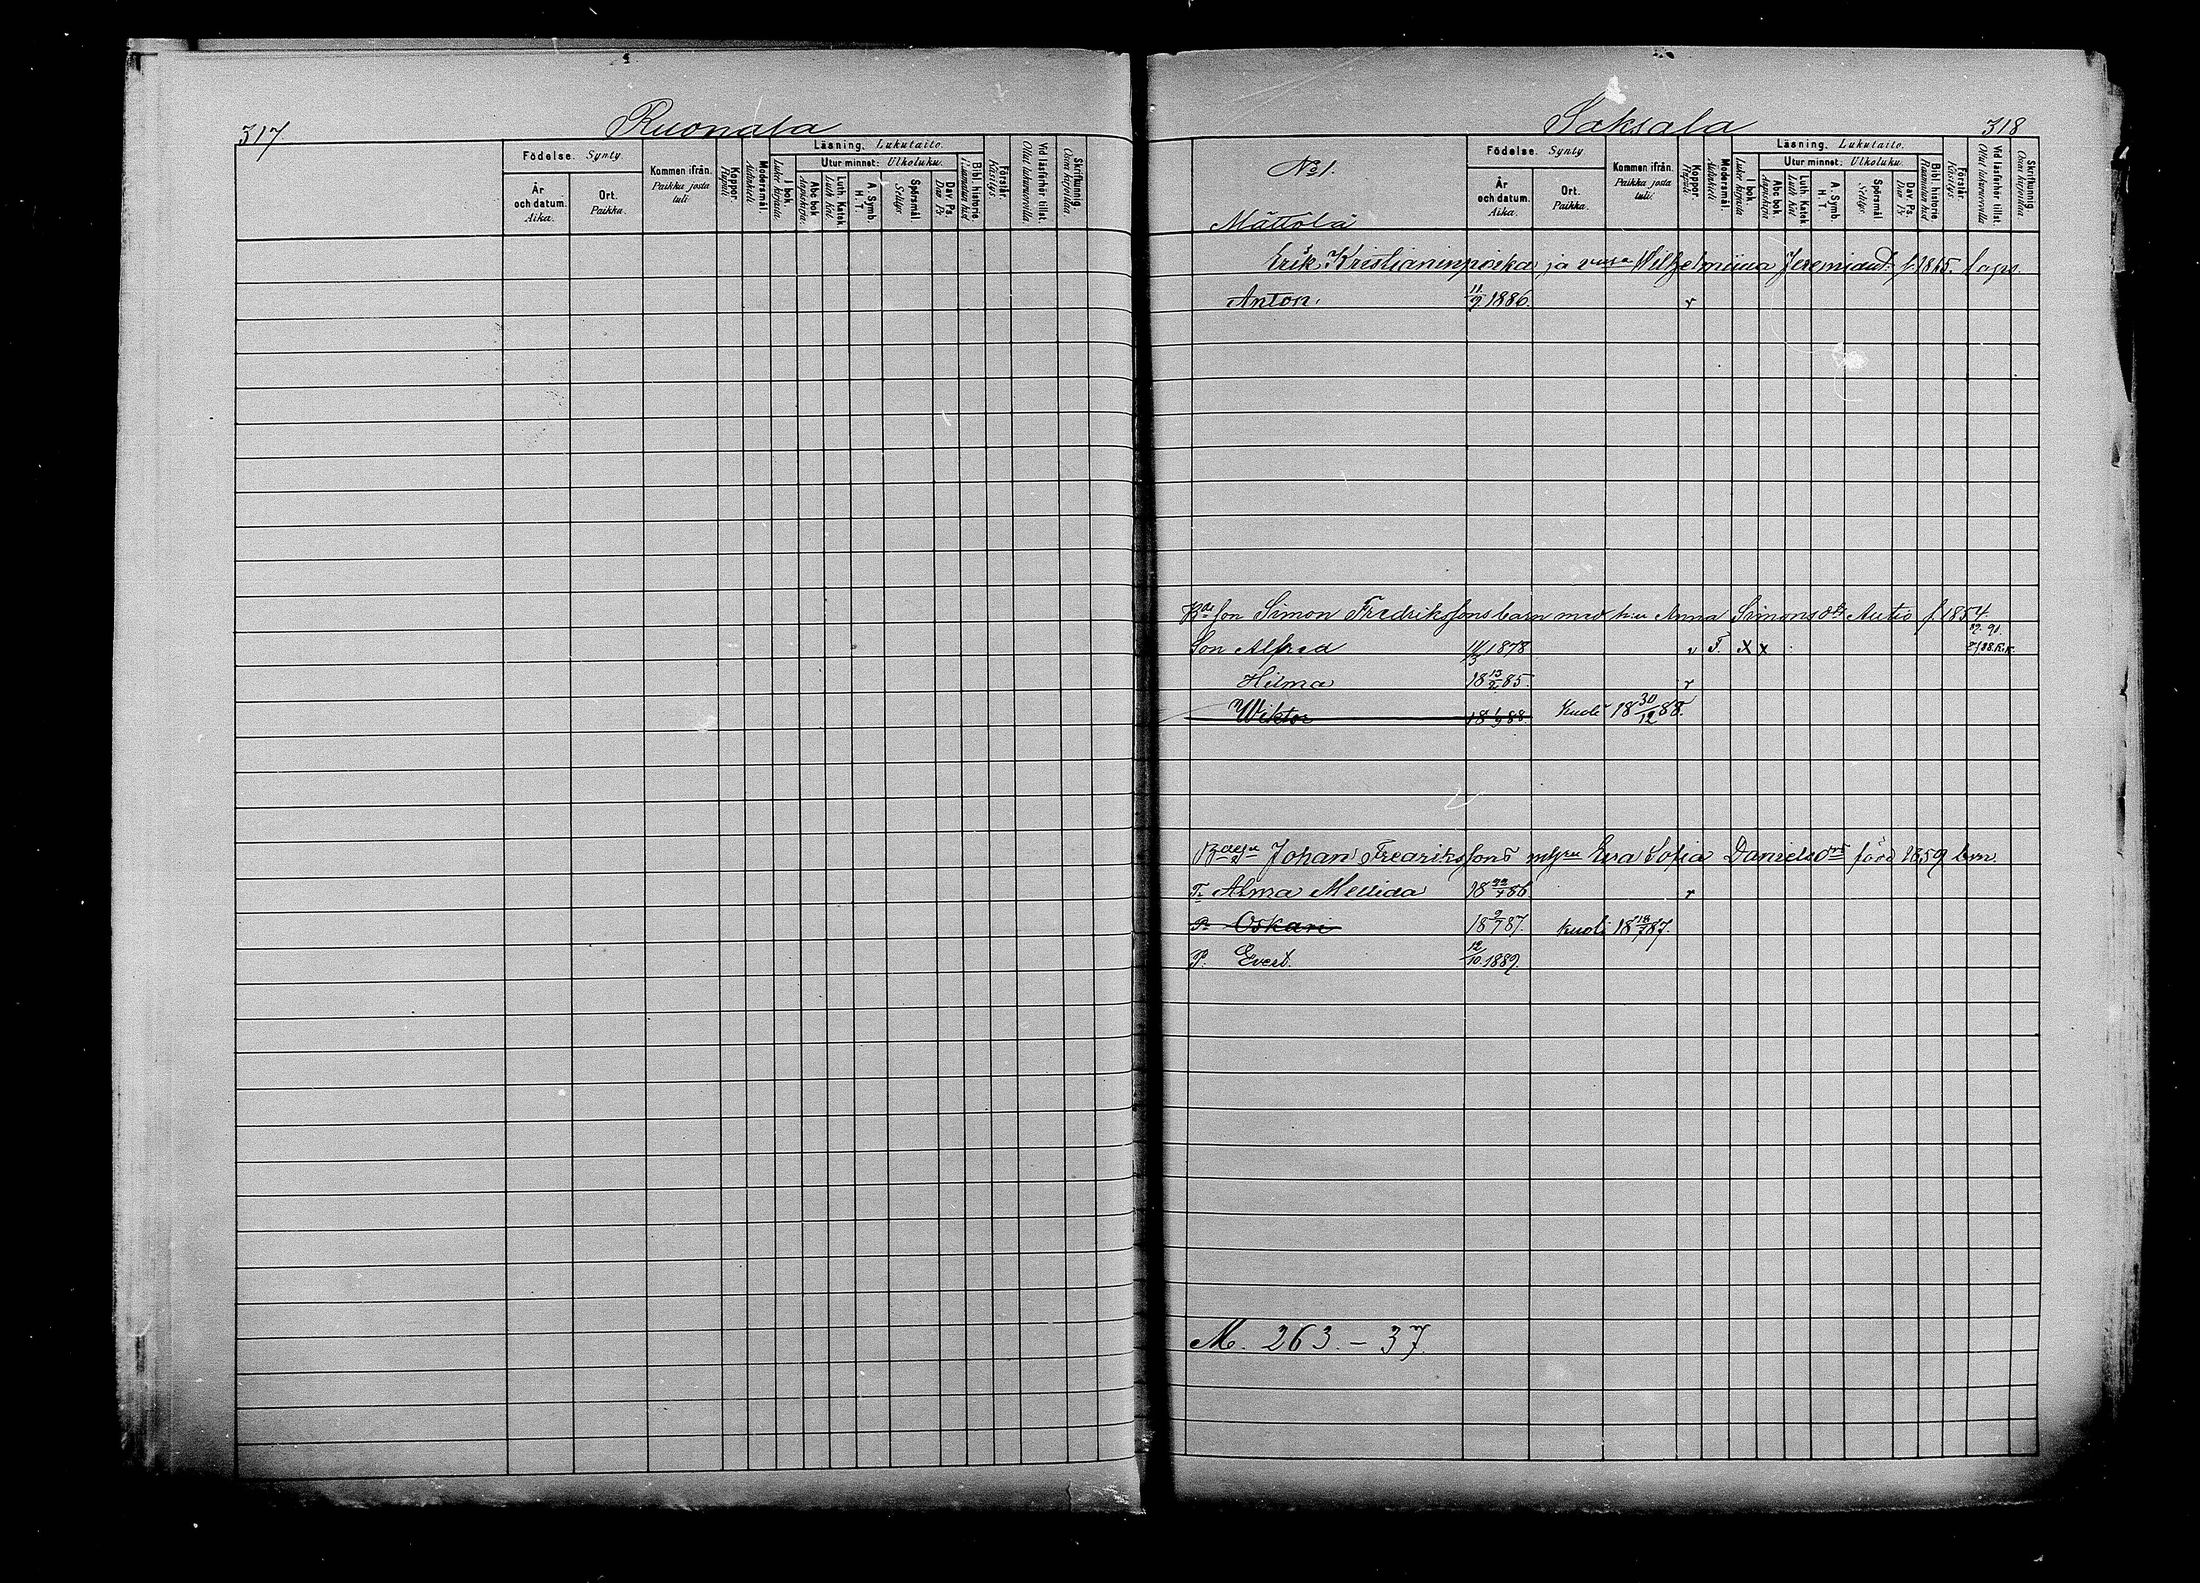 317.
Ruonala
Födelse. Synty
År och datum. Aika.
Ort. Paikka.
Kommen ifrån. Paikka josta tuli.
Koppor. Rupuli
Modersmål. Äidinkieli
Läsning. Lukutaito.
I bok. Luku kirjasta
Utur minnet: Ulkoluku.
Abc bok Aapiskirja
Luth. Katek. Luth. Kat.
A. Symb. H. T.
Spörsmål Selitys.
Dav. Ps. Dav. Ps.
Bibl. historie Raamatun hist.
Förstår. Käsitys.
Vid läsförhör tillst. Ollut lukuvuorolla
Skriftkunnig. Osaa kirjoittaa
Saksala
318
№ 1.
Födelse. Synty
År och datum. Aika.
Ort. Paikka.
Kommen ifrån. Paikka josta tuli.
Koppor. Rupuli
Modersmål. Äidinkieli
Läsning. Lukutaito.
I bok. Luku kirjasta
Utur minnet: Ulkoluku.
Abc bok Aapiskirja
Luth. Katek. Luth. Kat.
A. Symb. H. T.
Spörsmål Selitys.
Dav. Ps. Dav. Ps.
Bibl. historie Raamatun hist.
Förstår. Käsitys.
Vid läsförhör tillst. Ollut lukuvuorolla
Skriftkunnig. Osaa kirjoittaa
Mättölä
Erik Kristianinpoika ja Vilhelmiina Jeremiaut. f. 1865. laps.
Anton. 11/9 1886. v
son Simon Fredrikssons barn med h:u Anna Simonsdtr Autio f. 1854.
89. 91.
Son Alfred 1878 v F. x x 88. K. K.
Hilma 18 13/2 85. v
Wiktor 18 1/9 88. Kuoli 18 30/12 88.
Johan Fredrikssons Eva Sofia Danielsdtr född 1859 barn
T. Alma Mellida 18 86. v
P. Oskari 18 9/7 87. Kuoli 18 87.
P. Evert. 12/10 1889.
M. 263. – 37.